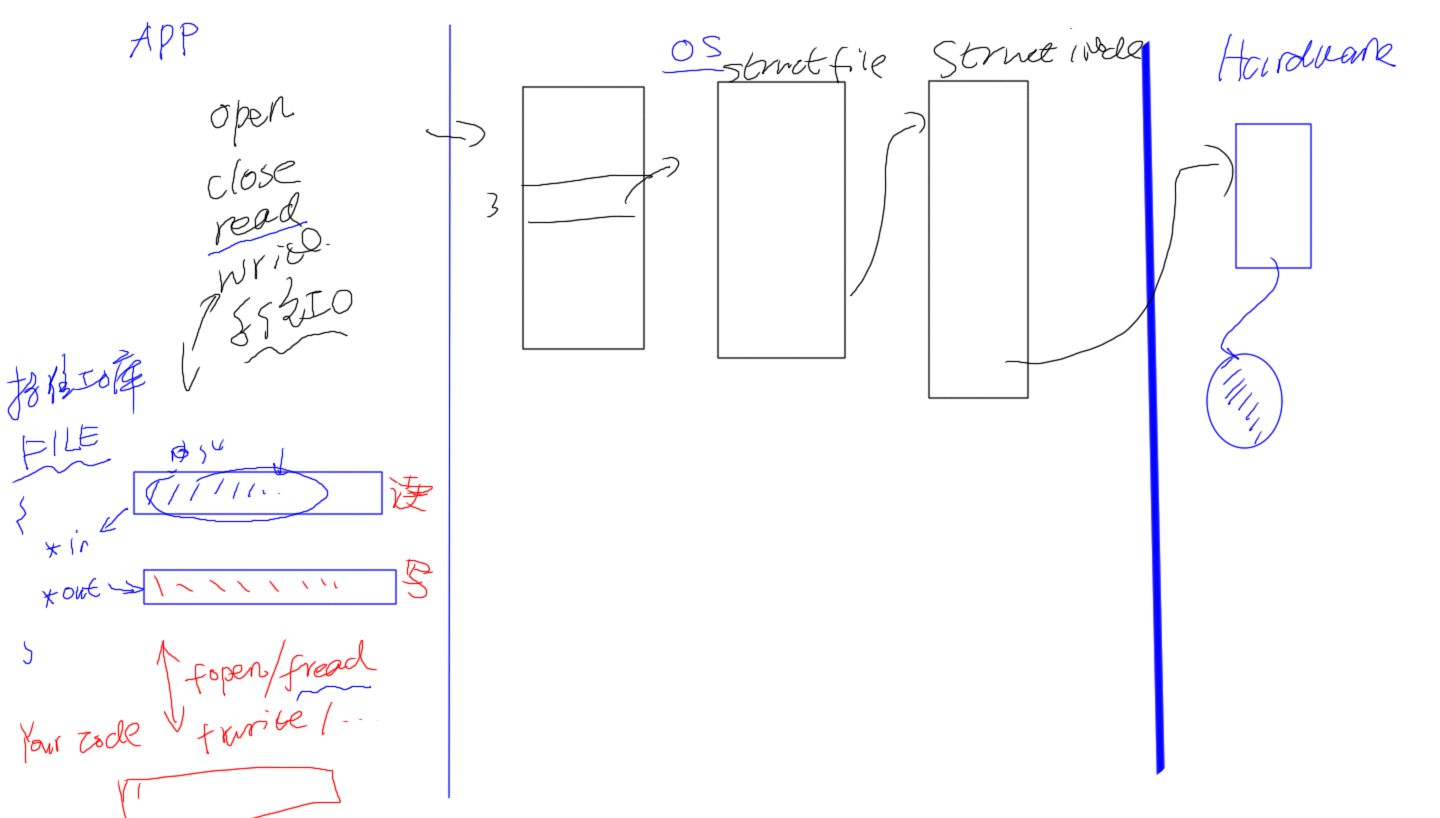 APP
open
close
read
write
系统IO
标准IO库
FILE
{
*in
读
*out
写
}
fopen/fread
fwrite/...
Your code
OS
struct file
struct inode
3
Hardware